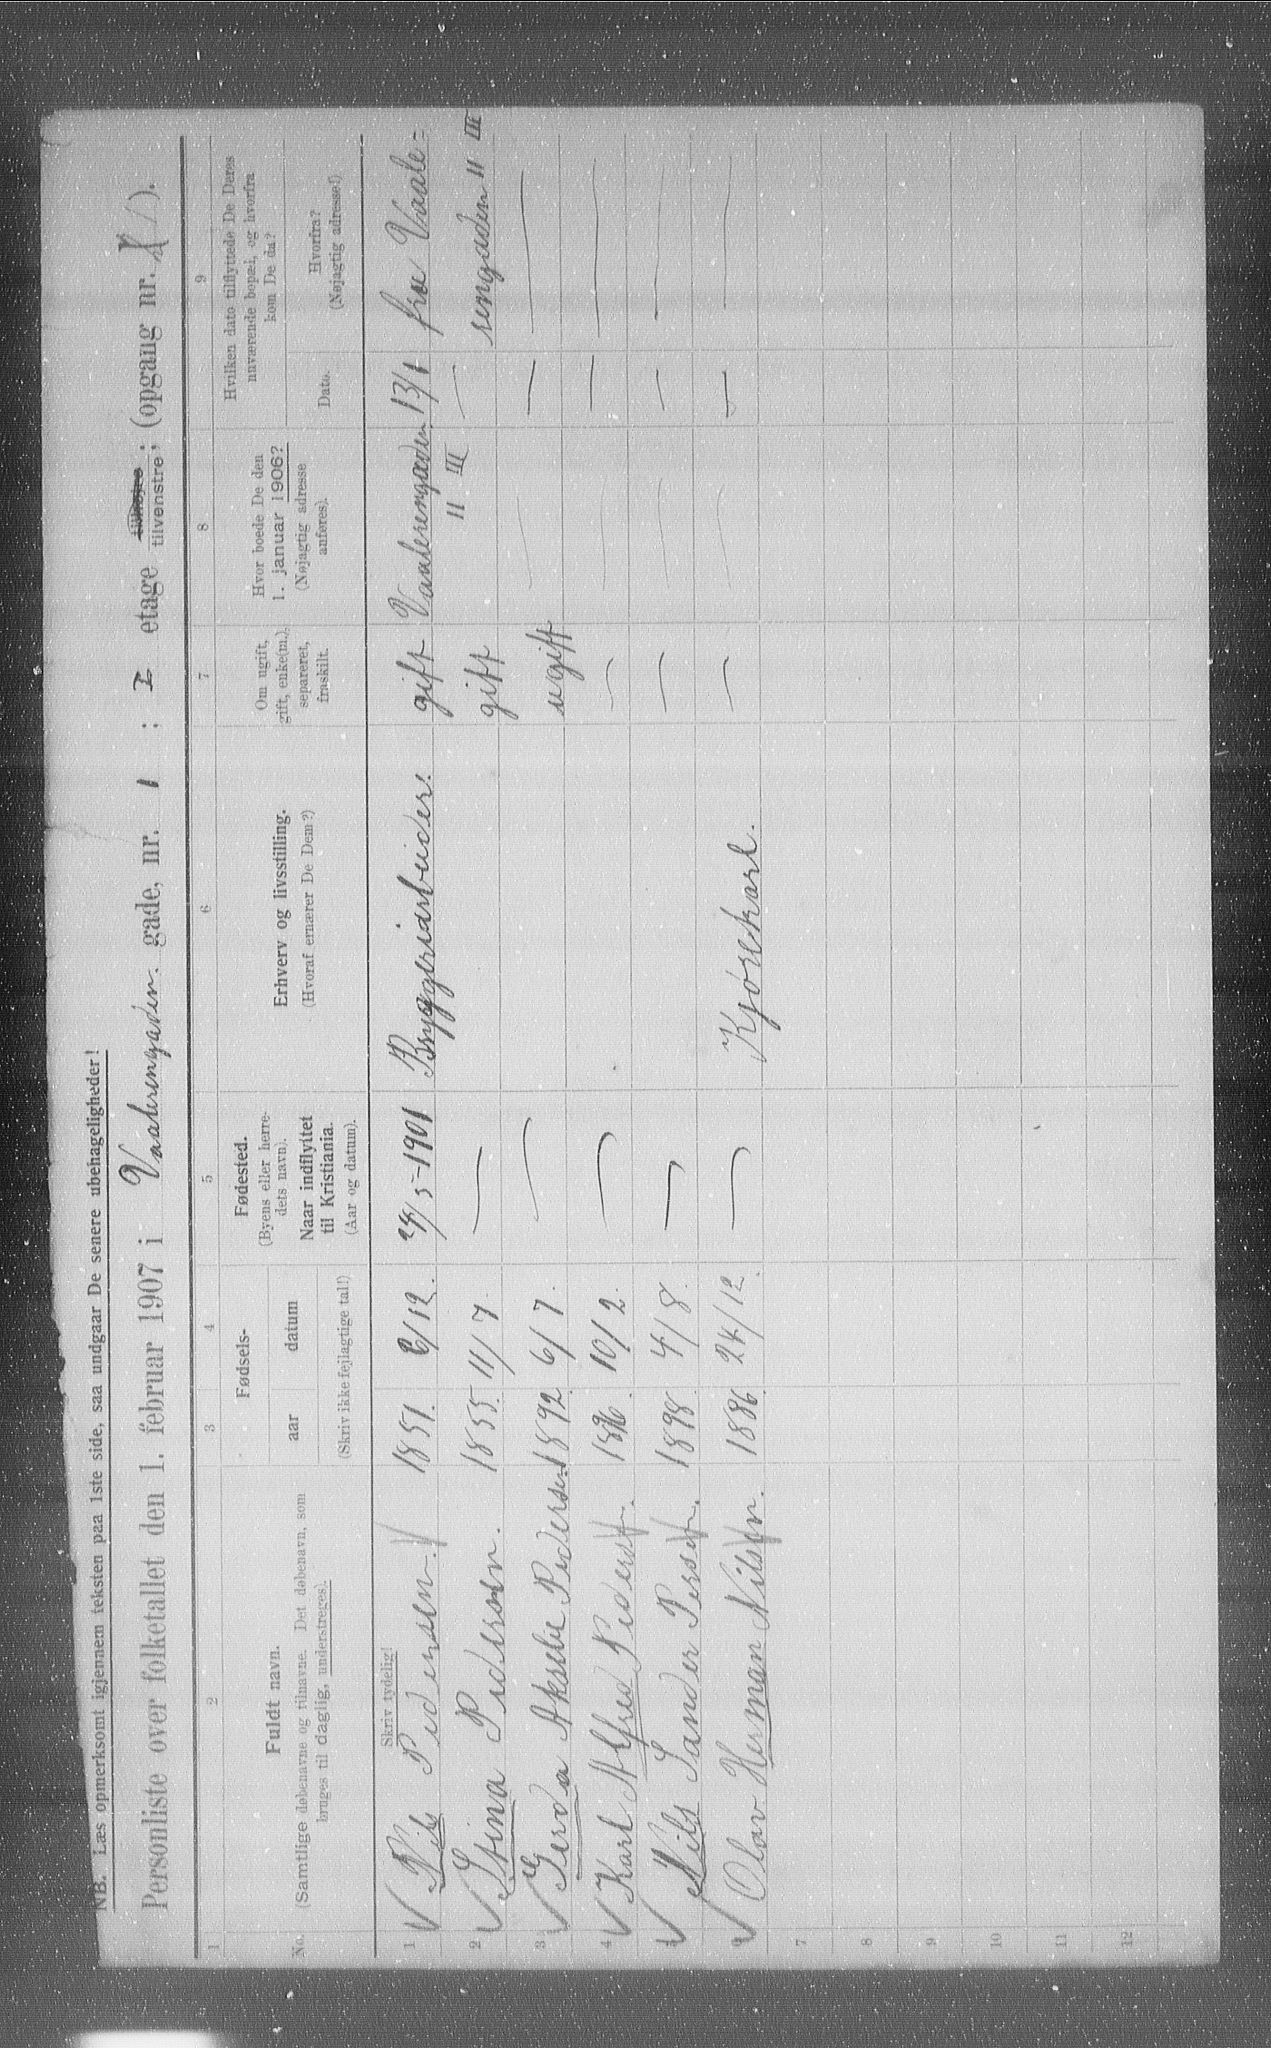 NB. Læs opmerksomt igjennem teksten paa 1ste side, saa undgaar De senere ubehageligheder!
Personliste over folketallet den 1. februar 1907 i Vaalerengaden. gade, nr. 1 ; I etage tilhøjre tilvenstre; (opgang nr. ).
1 2 3 4 5 6 7 8 9
No.
Fuldt navn.
(Samtlige døbenavne og tilnavne. Det døbenavn, som
bruges til daglig, understreges).
Fødsels-
aar datum
(Skriv ikke fejlagtige tal!)
Fødested.
(Byens eller herre-
dets navn).
Naar indflyttet
til Kristiania.
(Aar og datum).
Erhverv og livsstilling.
(Hvoraf ernærer De Dem?)
Om ugift,
gift, enke(m.),
separeret,
fraskilt.
Hvor boede De den
1. januar 1906?
(Nøjagtig adresse
anføres).
Hvilken dato tilflyttede De Deres
nuværende bopæl, og hvorfra
kom De da?
Dato.
Hvorfra?
(Nøjagtig adresse!)
Skriv tydelig!
1 Nils Pedersen. 1851. 6/12. 24/5-1901 Bryggeriarbeider. gift Vaalerengaden 11 III 13/1 fra Vaale=
2 Stina Pederson. 1855. 11/7. — gift — rengaden 11 III
3 Gerda Akselie Pedersen 1892. 6/7. — ugift — — —
4 Karl Alfred Peders. 1896. 10/2. — — — — —
5 Nils Sander Persen. 1898. 4/8. — — — — —
6 Olav Herman Nilsen. 1886. 24/12. — Kjørekarl. — — — —
7
8
9
10
11
12